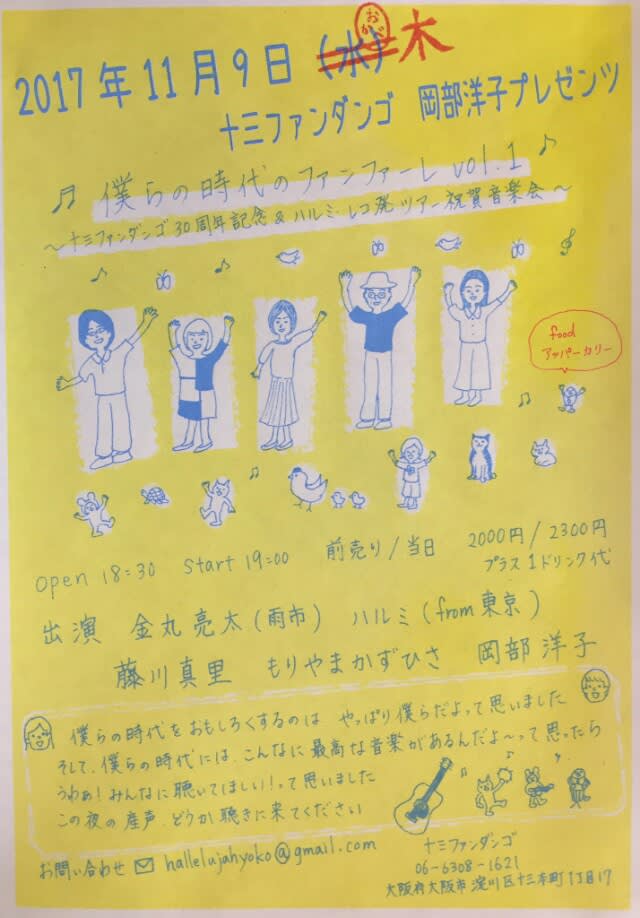 2017年11月9日（水）木
おかべ
十三ファンダンゴ 岡部洋子プレゼンツ
僕らの時代のファンファーレ vol.1
〜十三ファンダンゴ30周年記念&ハルミ・レコ発ツアー祝賀音楽会〜
food
アッパーカリー
open 18:30 start 19:00 前売り/当日 2000円/2300円
プラス1ドリンク代
出演 金丸亮太(雨市) ハルミ(from東京)
藤川真里 もりやまかずひさ 岡部洋子
僕らの時代をおもしろくするのは やっぱり僕らだよって思いました
そして、僕らの時代には、こんなに最高な音楽があるんだよ〜って思ったら
うわぁ!みんなに聴いてほしい!って思いました
この夜の産声、どうか聴きに来てください
お問い合わせ hallelujahyoko@gmail.com
十三ファンダンゴ
06-6308-1621
大阪府大阪市淀川区十三本町1丁目17